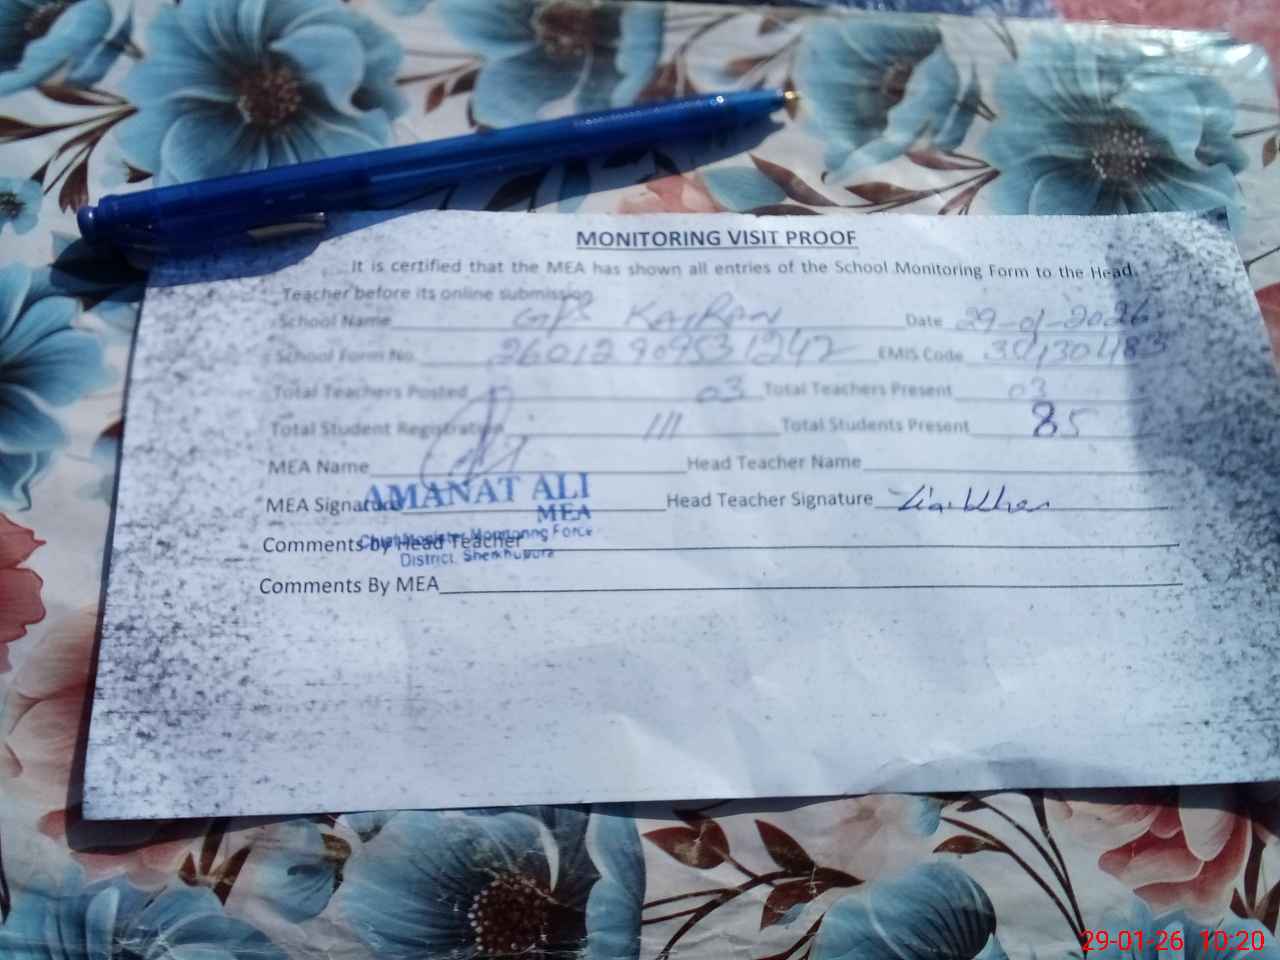 MONITORING VISIT PROOF
It is certified that the MEA has shown all entries of the School Monitoring Form to the Head
Teacher before its online submission
School Name GPS Date 29-01-2026
School Form No. EMIS Code
Total Teachers Posted 03 Total Teachers Present 03
Total Student Registration 111 Total Students Present 85
MEA Name Head Teacher Name
MEA Signature Head Teacher Signature
AMANAT ALI
MEA
Chief Minister Monitoring Force
District. Sheikhupura
Comments by Head Teacher
Comments By MEA
29-01-26 10:20